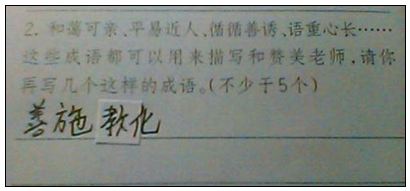 2. 和蔼可亲、平易近人、循循善诱、语重心长……
这些成语都可以用来描写和赞美老师,请你
再写几个这样的成语。(不少于5个)
善施教化